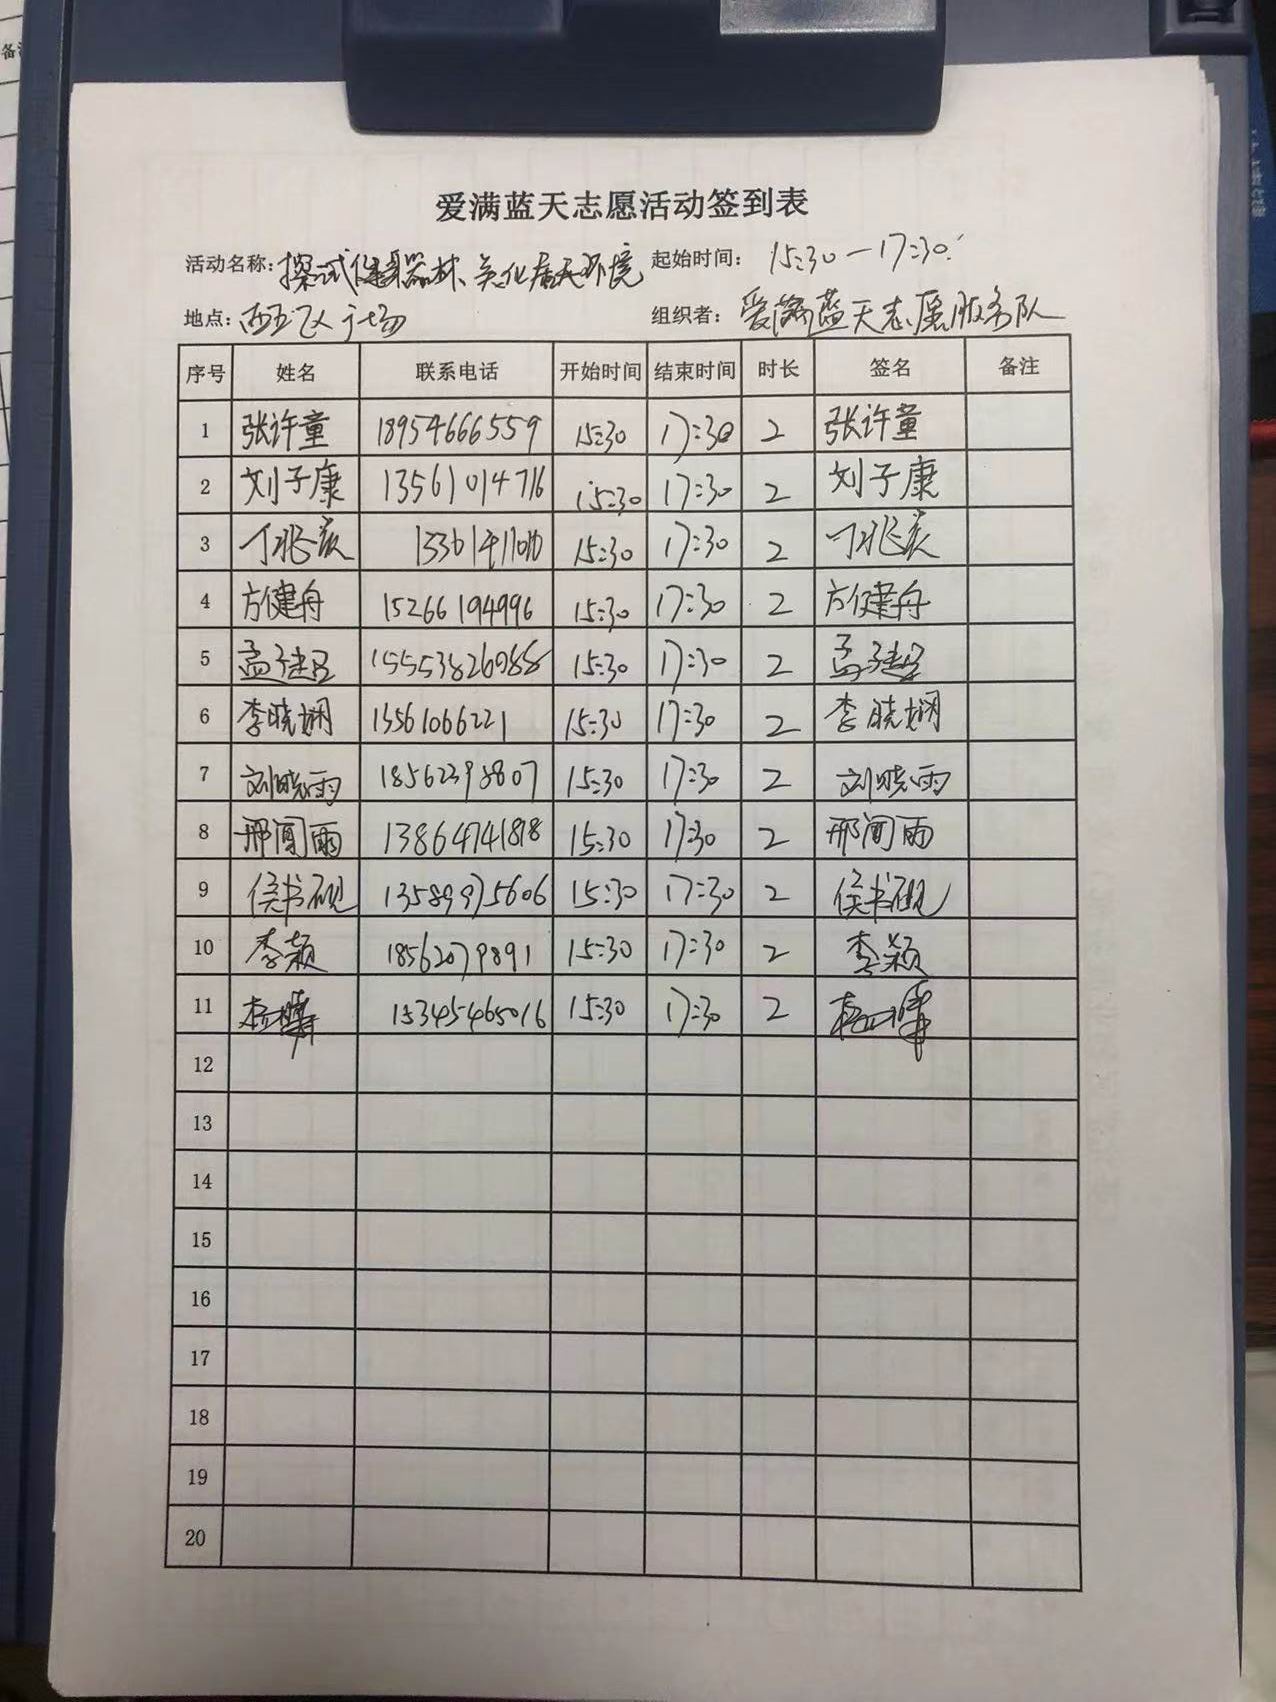 爱满蓝天志愿活动签到表
活动名称: 擦试健身器材、美化居民环境 起始时间: 15:30—17:30
地点: 西五区广场 组织者: 爱满蓝天志愿服务队
序号 姓名 联系电话 开始时间 结束时间 时长 签名 备注
1 张许童 18954666559 15:30 17:30 2 张许童
2 刘子康 13561014716 15:30 17:30 2 刘子康
3 丁兆 15:30 17:30 2 丁兆
4 方健舟 15266194996 15:30 17:30 2 方健舟
5 孟 15553826988 15:30 17:30 2 孟
6 李晓娴 13561066221 15:30 17:30 2 李晓娴
7 刘晓雨 18562398807 15:30 17:30 2 刘晓雨
8 邢闻雨 13864741818 15:30 17:30 2 邢闻雨
9 侯书砚 13589975606 15:30 17:30 2 侯书砚
10 李颖 18562079891 15:30 17:30 2 李颖
11 15345465016 15:30 17:30 2
12
13
14
15
16
17
18
19
20